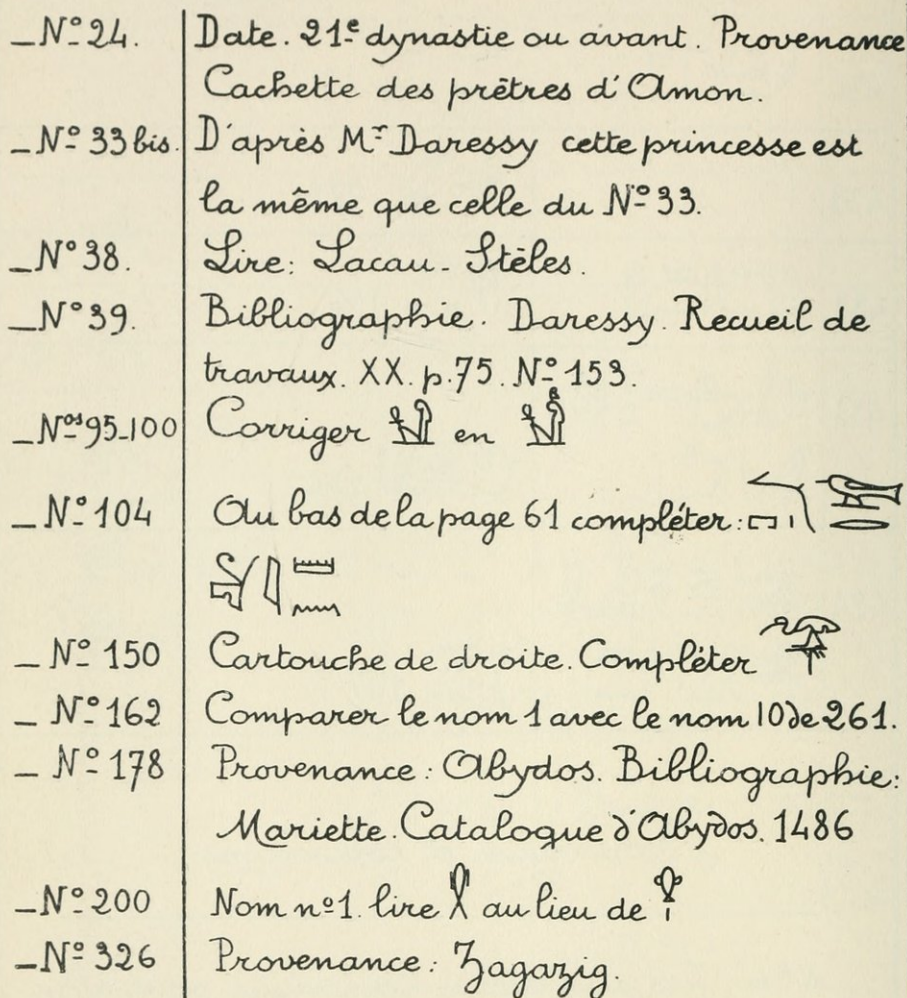 _ Nº 24. Date. 21e dynastie ou avant. Provenance
Cachette des prêtres d'Amon.
_ Nº 33 bis. D'après Mr Daressy cette princesse est
la même que celle du Nº 33.
_ N° 38. Lire: Lacau - Stèles.
_ N° 39. Bibliographie. Daressy. Recueil de
travaux. XX. p. 75. Nº 153.
_ Nos 95-100 Corriger en
_ Nº 104 Au bas de la page 61 compléter:
_ Nº 150 Cartouche de droite. Compléter
_ Nº 162 Comparer le nom 1 avec le nom 10 de 261.
_ Nº 178 Provenance: Abydos. Bibliographie:
Mariette. Catalogue d'Abydos. 1486
_ Nº 200 Nom nº 1. lire au lieu de
_ Nº 326 Provenance: Zagazig.